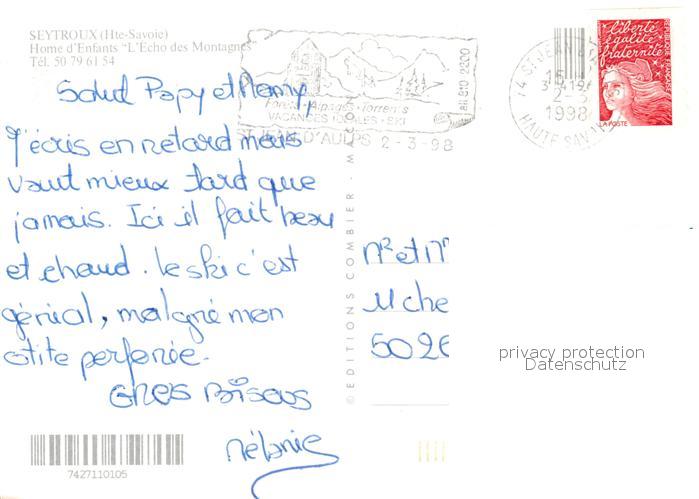 SEYTROUX (Hte-Savoie)
Home d'Enfants "L'Écho des Montagnes"
Tél. 50 79 61 54
Salut Papy et Mamy,
J'écris en retard mais
vaut mieux tard que
jamais. Ici il fait beau
et chaud. le ski c'est
génial, malgré mon
otite perforée.
Gros Bisous
Mélanie
7427110105
Forêts - Alpages - Torrents
VACANCES IDÉALES - SKI
ST JEAN D'AULPS 2-3-98
alt 810/2200
© EDITIONS COMBIER - MACON
74 ST JEAN D'
15
2-3
1998
HAUTE SAVOIE
liberté
égalité
fraternité
RÉPUBLIQUE FRANÇAISE
LA POSTE
Mr et M
11 che
5026
privacy protection
Datenschutz